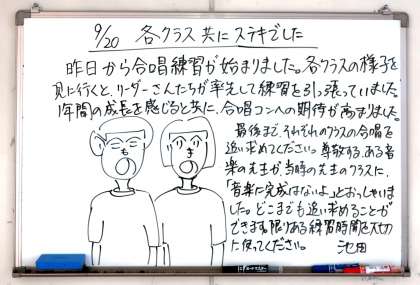 9/20 各クラス共にステキでした
昨日から合唱練習が始まりました。各クラスの様子を
見に行くと、リーダーさんたちが率先して練習を引っ張っていました。
1年間の成長を感じると共に、合唱コンへの期待が高まりました。
最後まで、それぞれのクラスの合唱を
追い求めてください。尊敬する、ある音
楽の先生が、当時の先生のクラスに、
「音楽に完成はないよ」とおっしゃいま
した。どこまでも追い求めることが
できます。限りある練習時間を大切
に使ってください。 池田